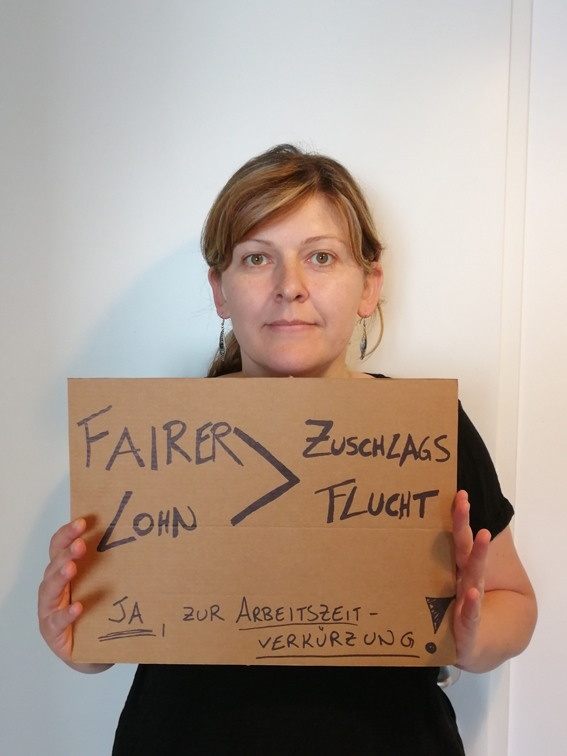 FAIRER > ZUSCHLAGS
LOHN FLUCHT
JA, ZUR ARBEITSZEIT-
VERKÜRZUNG!